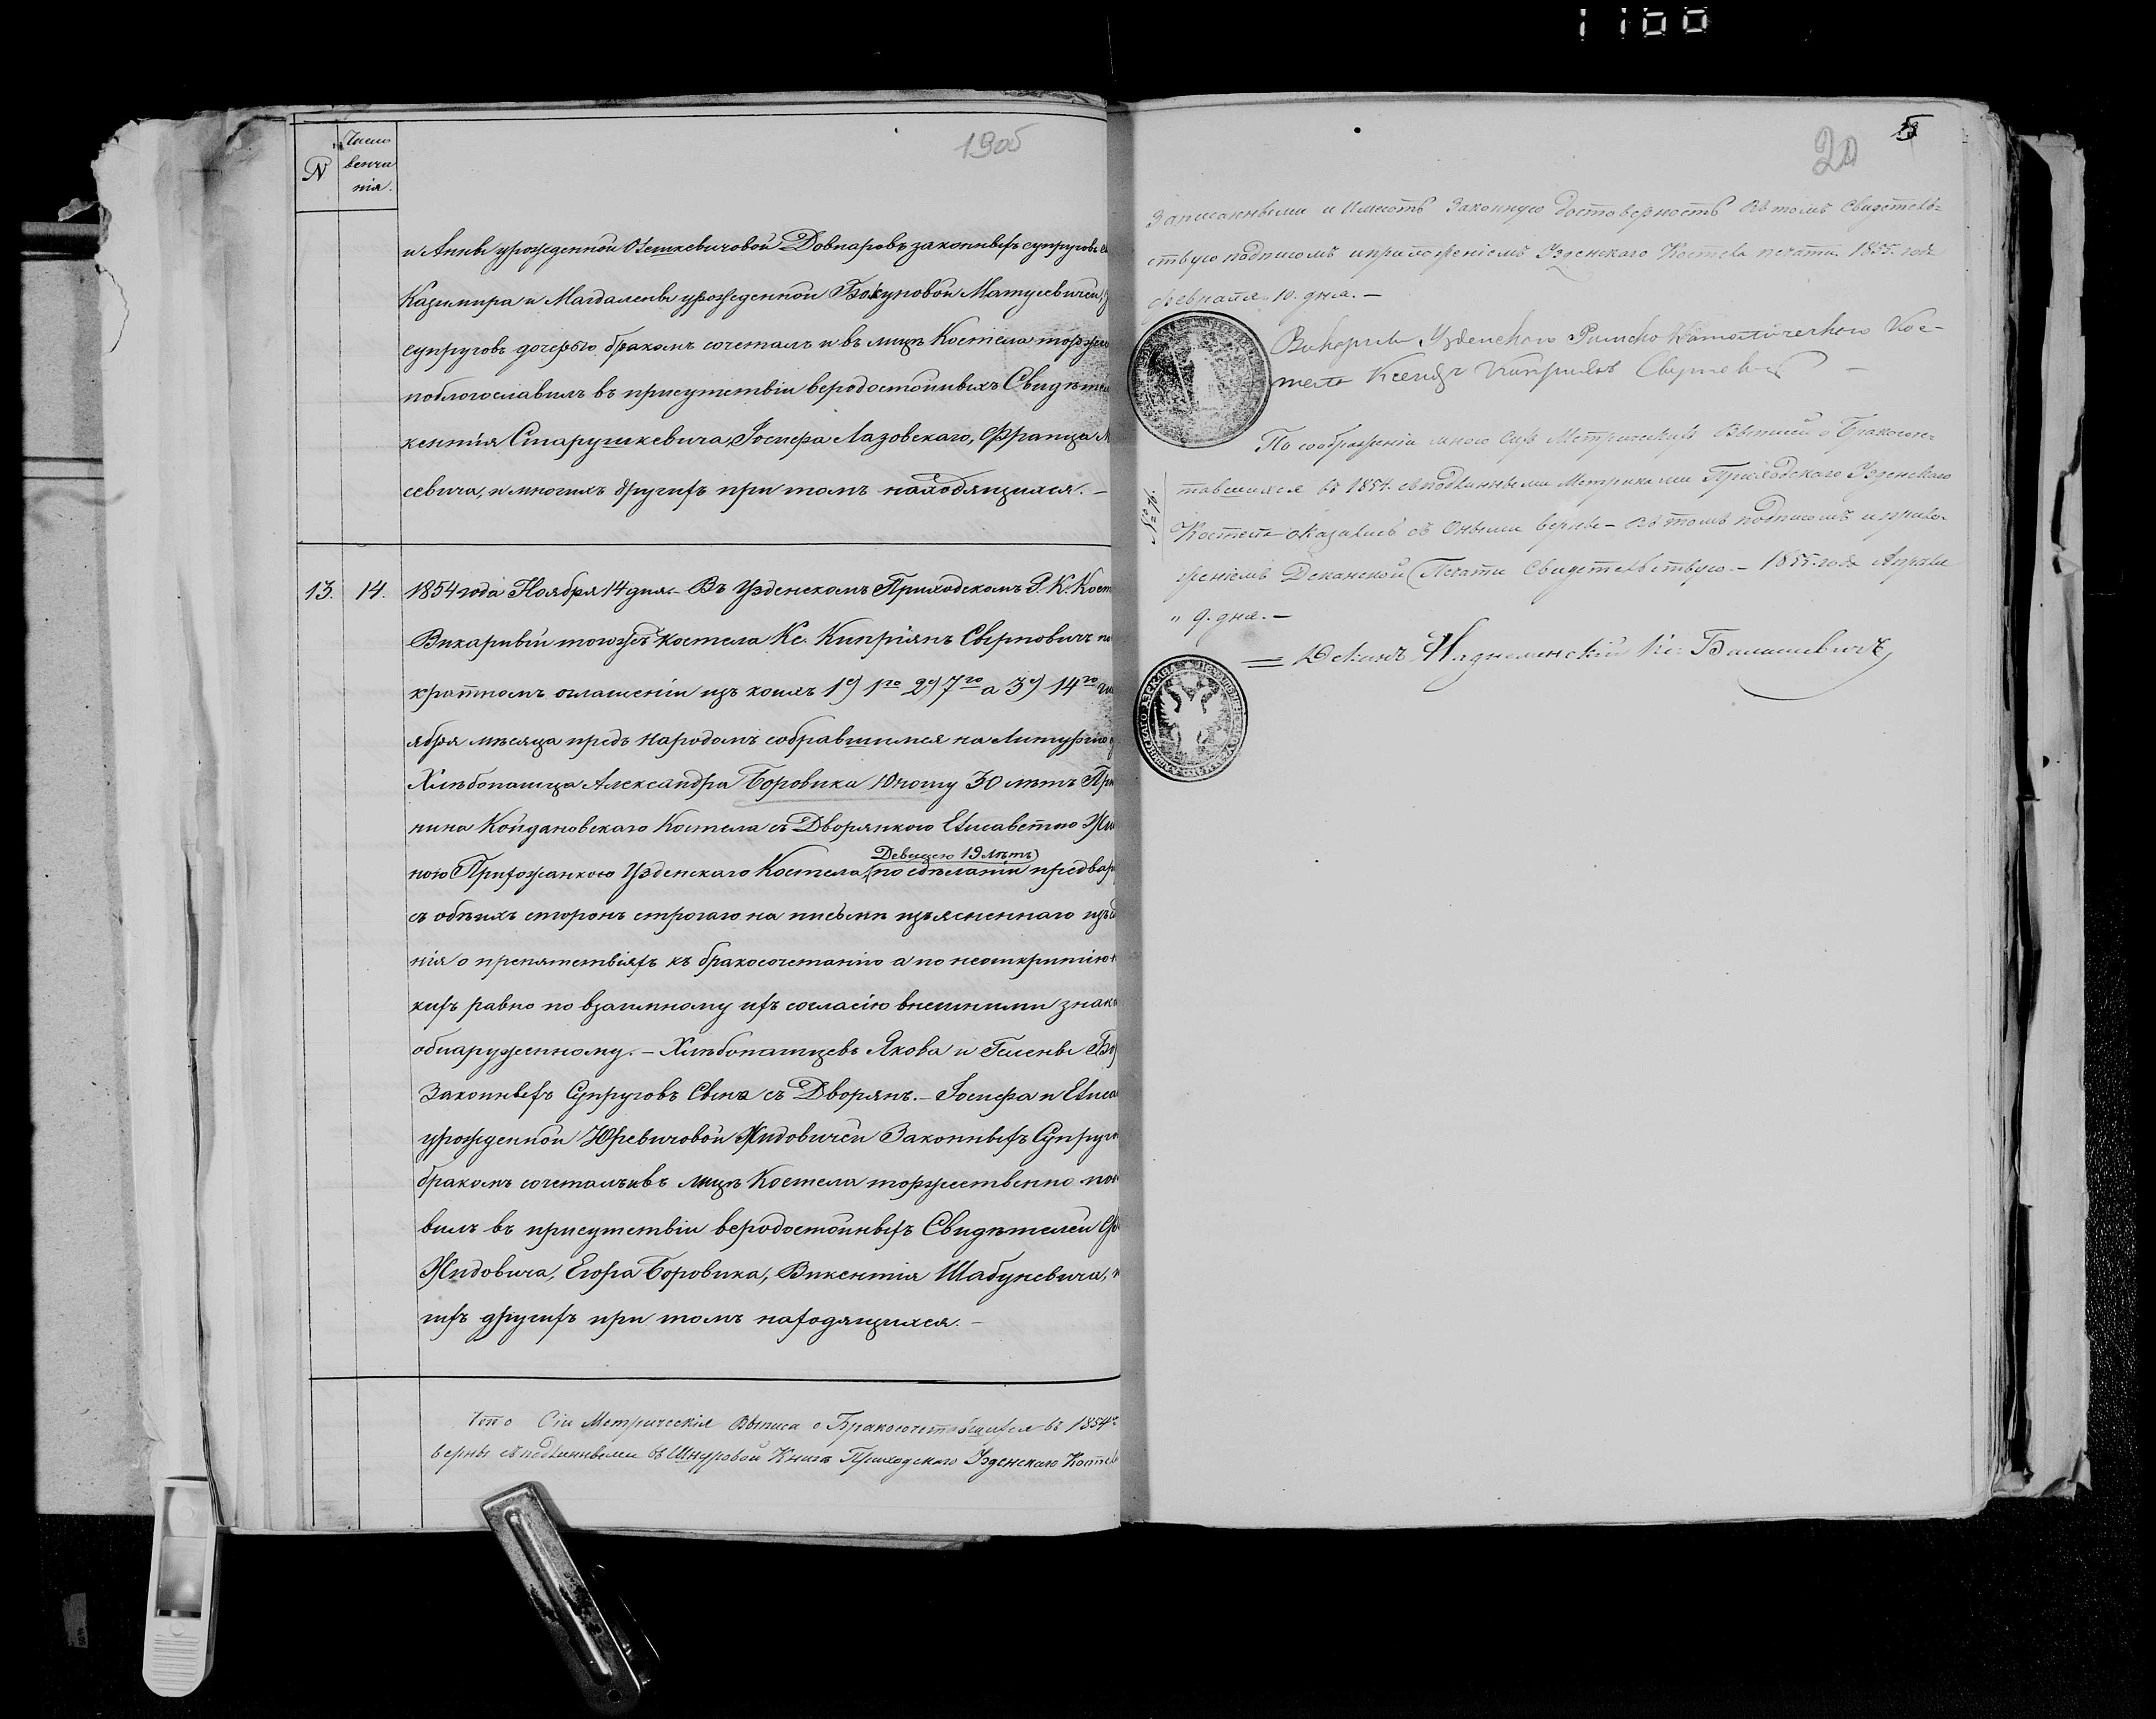 1100
19об
N
Число
венча
нія.
и Анны урожденной Олешкевичовой Довнаровъ законныхъ супруговъ
Казимира и Магдалены урожденной Бокуновой Матусевичей,
супруговъ дочерью бракомъ сочеталъ и въ лицѣ Костела торже
поблогославилъ въ присутствіи веродостойныхъ Свидѣте
кентія Старушкевича, Іосифа Лазовскаго, Франца М
севича, и многихъ другихъ при томъ находящихся. –
13. 14. 1854 года Ноября 14 дня. – Въ Узденскомъ Приходскомъ Р. К. Кост
Викарный тогожъ Костела Кс. Кипріянъ Свірновичъ по
кратномъ оглашеніи изъ коихъ 1е) 1го 2е) 7го а 3е) 14го
ября мѣсяца предъ народомъ собравшимся на Литургію
Хлѣбопашца Александра Боровика Юношу 30 лѣтъ При
нина Койдановскаго Костела съ Дворянкою Елисаветою Жи
Девицею 19 лѣтъ
ною Прихожанкою Узденскаго Костела, по сдѣланіи предвар
съ обѣихъ сторонъ строгаго на письмѣ изъясненнаго изъи
нія о препятствіяхъ къ бракосочетанію а по неоткритію
кихъ равно по взаимному ихъ согласію внешними знак
обнаруженному. – Хлѣбопашцевъ Якова и Гелены Бо
Законныхъ Супруговъ Сына съ Дворянъ. – Іосифа и Елиса
урожденной Юревичовой Жидовичей Законныхъ Супруго
бракомъ сочеталъ и въ лицѣ Костела торжественно по
вилъ въ присутствіи веродостойныхъ Свидѣтелей
Жидовича, Егора Боровика, Викентія Шабуневича,
гихъ другихъ при томъ находящихся. –
Что Сіи Метрическія Выписи о Бракосочетавшихся въ 1854
верны съ подлинными въ Шнуровой Книге Приходского Узденскаго Костела
20
записанными и Имеютъ Законную достоверность въ томъ свидетель
ствую подписомъ и приложеніемъ Узденскаго Костела печати. 1855. года
февраля 10. дня. –
Викарный Узденскаго Римско Католического Кос-
тела Ксендзъ Кипріянъ
По соображеніи мною сихъ Метрическихъ Выписей о Бракосоче-
тавшихся въ 1854. съ подлинными Метриками Приходскаго Узденскаго
Костела оказались съ Оными верны – въ томъ подписомъ и прило-
женіемъ Деканской Печати Свидетельствую. – 1855. года Апреля
" 9. дня. –
Деканъ Наднеменскій Кс.